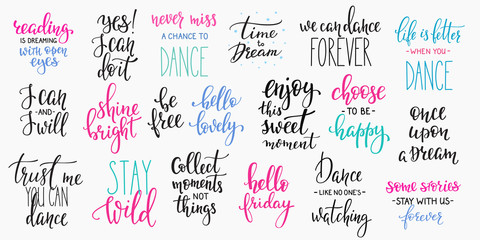 reading
IS DREAMING
with open
eyes
yes!
I can
do it
never miss
A CHANCE TO
DANCE
Time
to
Dream
we can dance
FOREVER
life is better
- WHEN YOU -
DANCE
I can
- AND -
I will
shine
bright
be
free
hello
lovely
enjoy
this
sweet
moment
choose
- TO BE -
happy
once
upon
a dream
trust me
YOU CAN
dance
STAY
wild
Collect
moments
NOT
things
hello
friday
Dance
- LIKE NO ONE'S -
watching
Some stories
- STAY WITH US -
forever